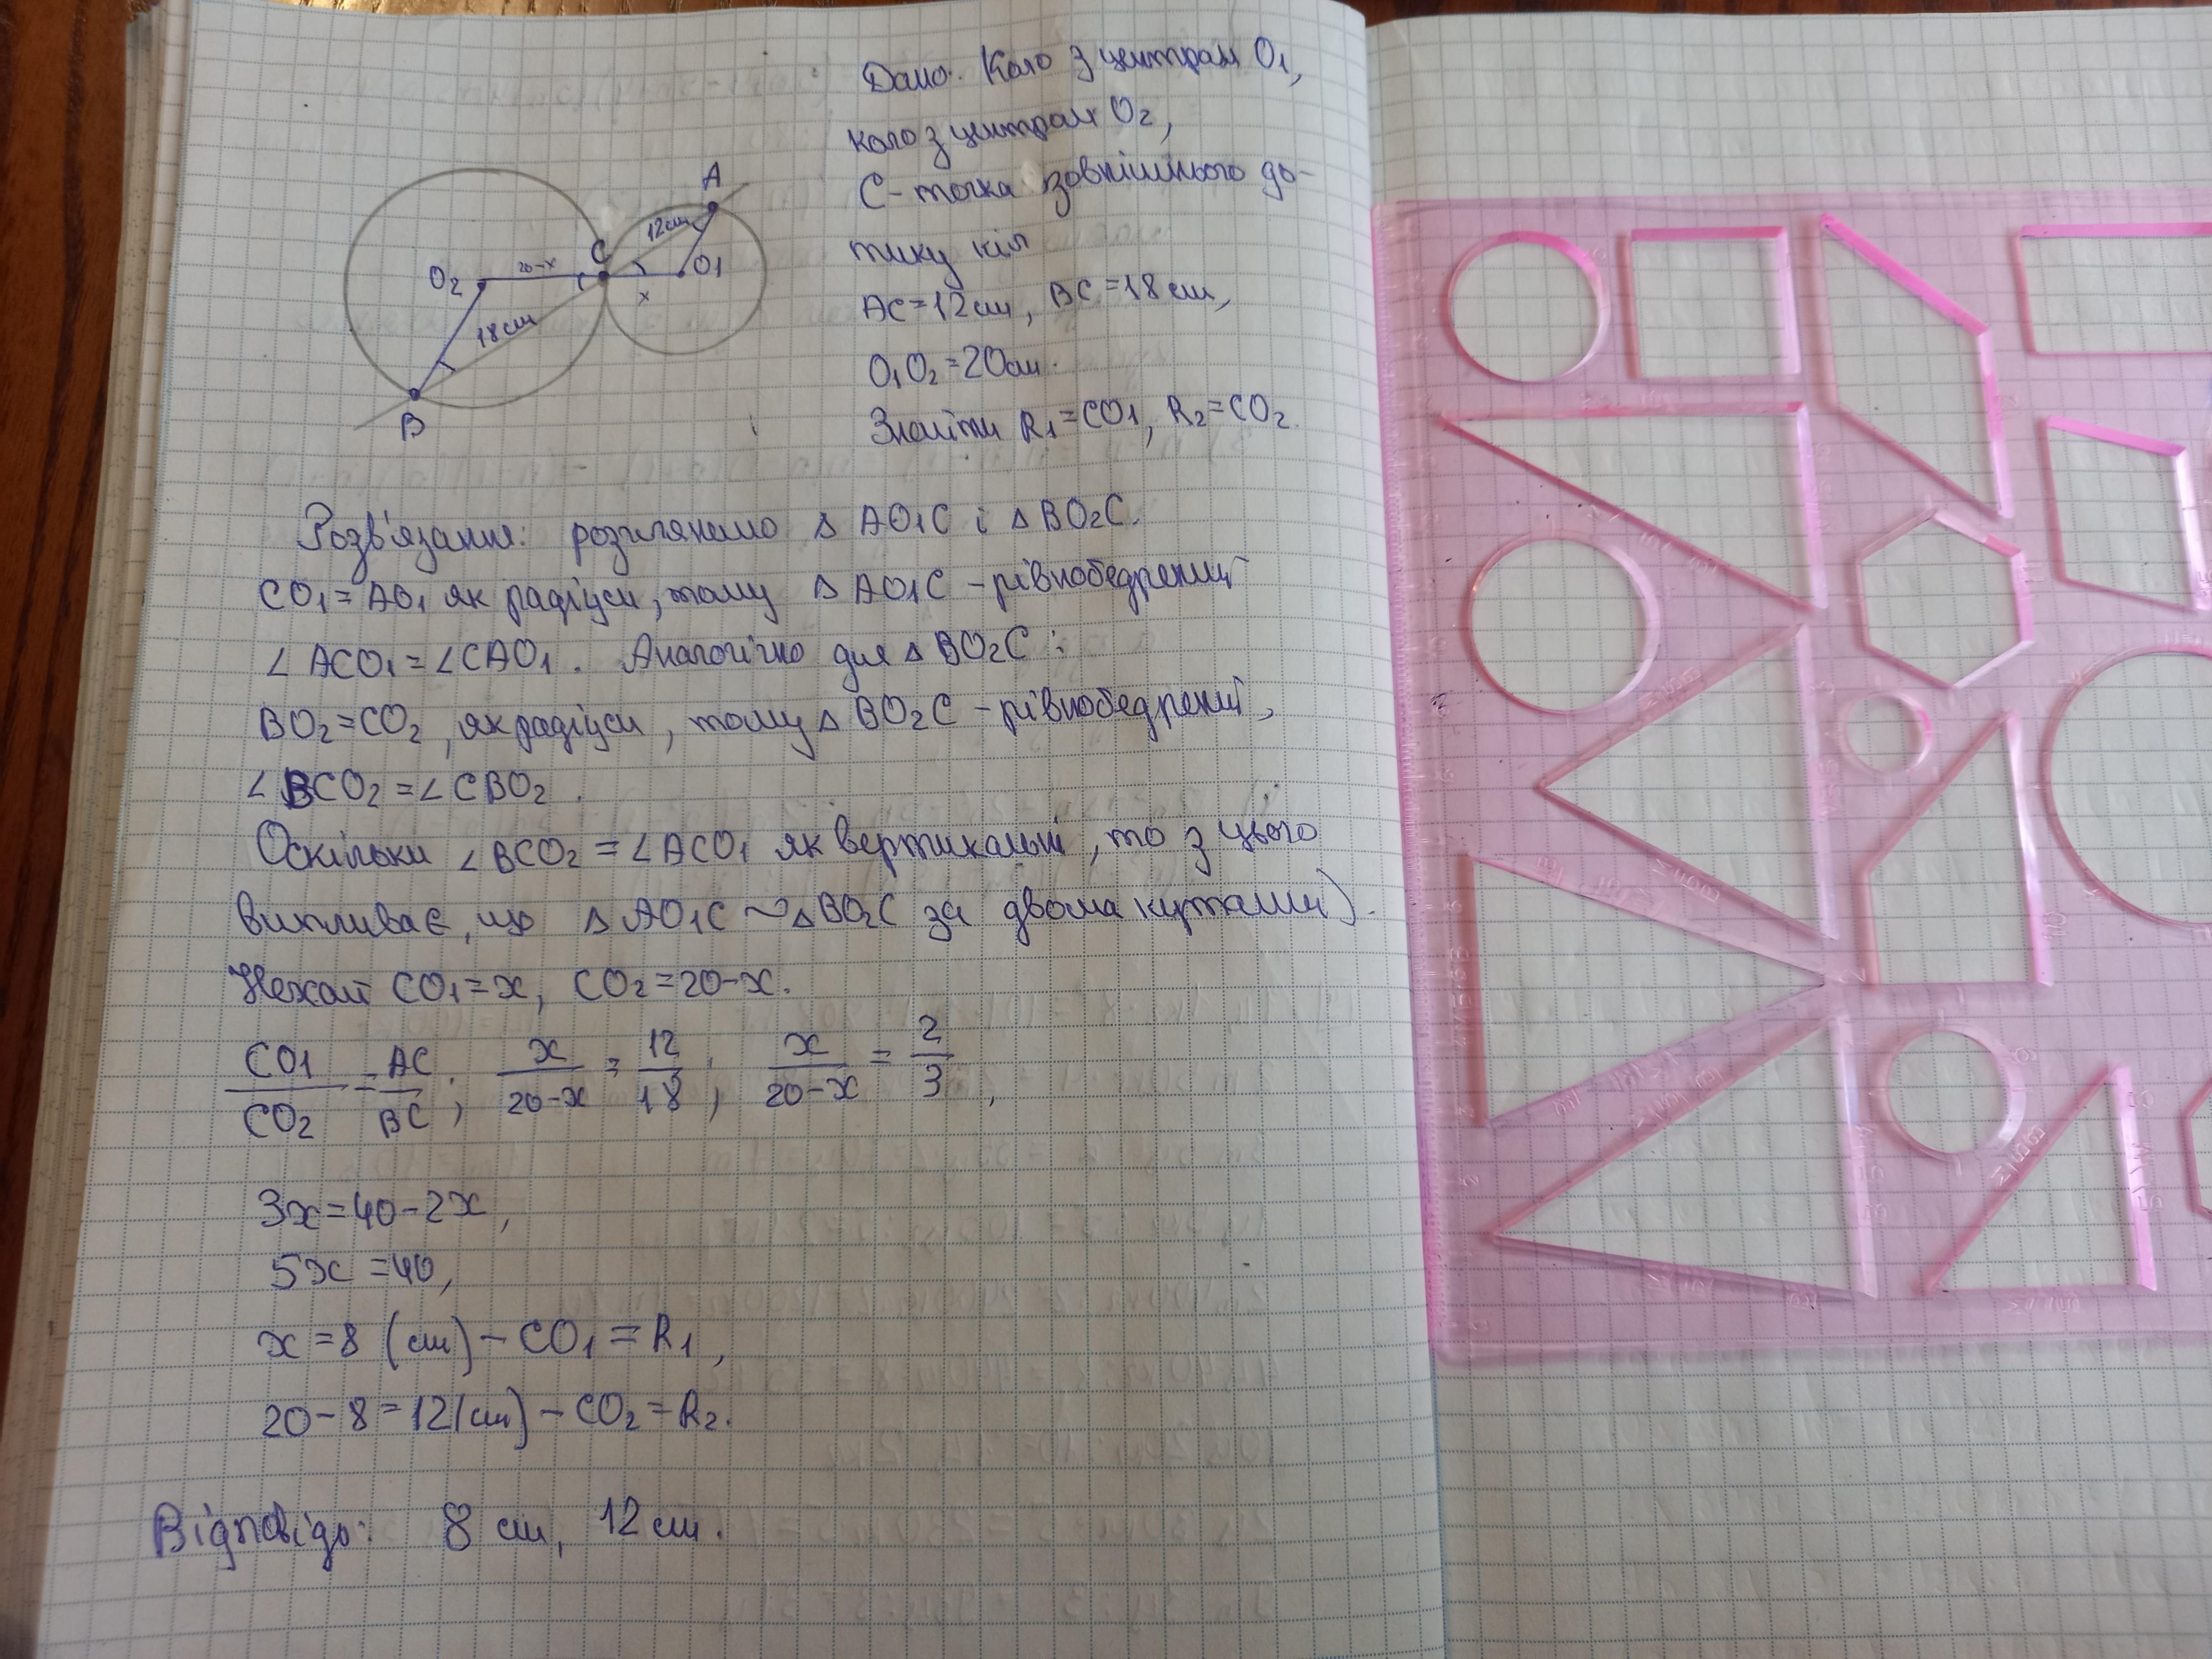 Дано: Коло з центром O1,
коло з центром O2,
C - точка зовнішнього до-
тику кіл
AC = 12 см, BC = 18 см,
O1O2 = 20 см.
Знайти R1 = CO1, R2 = CO2.
A
12 см
C
O1
O2
20-x
x
18 см
B
Розв'язання: розглянемо △ AO1C і △ BO2C.
CO1 = AO1 як радіуси, тому △ AO1C - рівнобедрений
∠ ACO1 = ∠CAO1. Аналогічно для △ BO2C:
BO2 = CO2, як радіуси, тому △ BO2C - рівнобедрений,
∠ BCO2 = ∠ CBO2.
Оскільки ∠ BCO2 = ∠ ACO1 як вертикальні, то з цього
випливає, що △ AO1C ~ △ BO2C за двома кутами).
Нехай CO1 = x, CO2 = 20-x.
CO1/CO2 = AC/BC; x/20-x = 12/18; x/20-x = 2/3,
3x = 40-2x,
5x = 40,
x = 8 (см) - CO1 = R1,
20 - 8 = 12 (см) - CO2 = R2.
Відповідь: 8 см, 12 см.